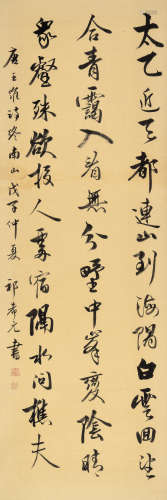 太乙近天都連山到海隅白雲回望
合青靄入看無分野中峯變陰晴
衆壑殊欲投人處宿隔水問樵夫
唐王維詩終南山戊子仲夏祁希元書